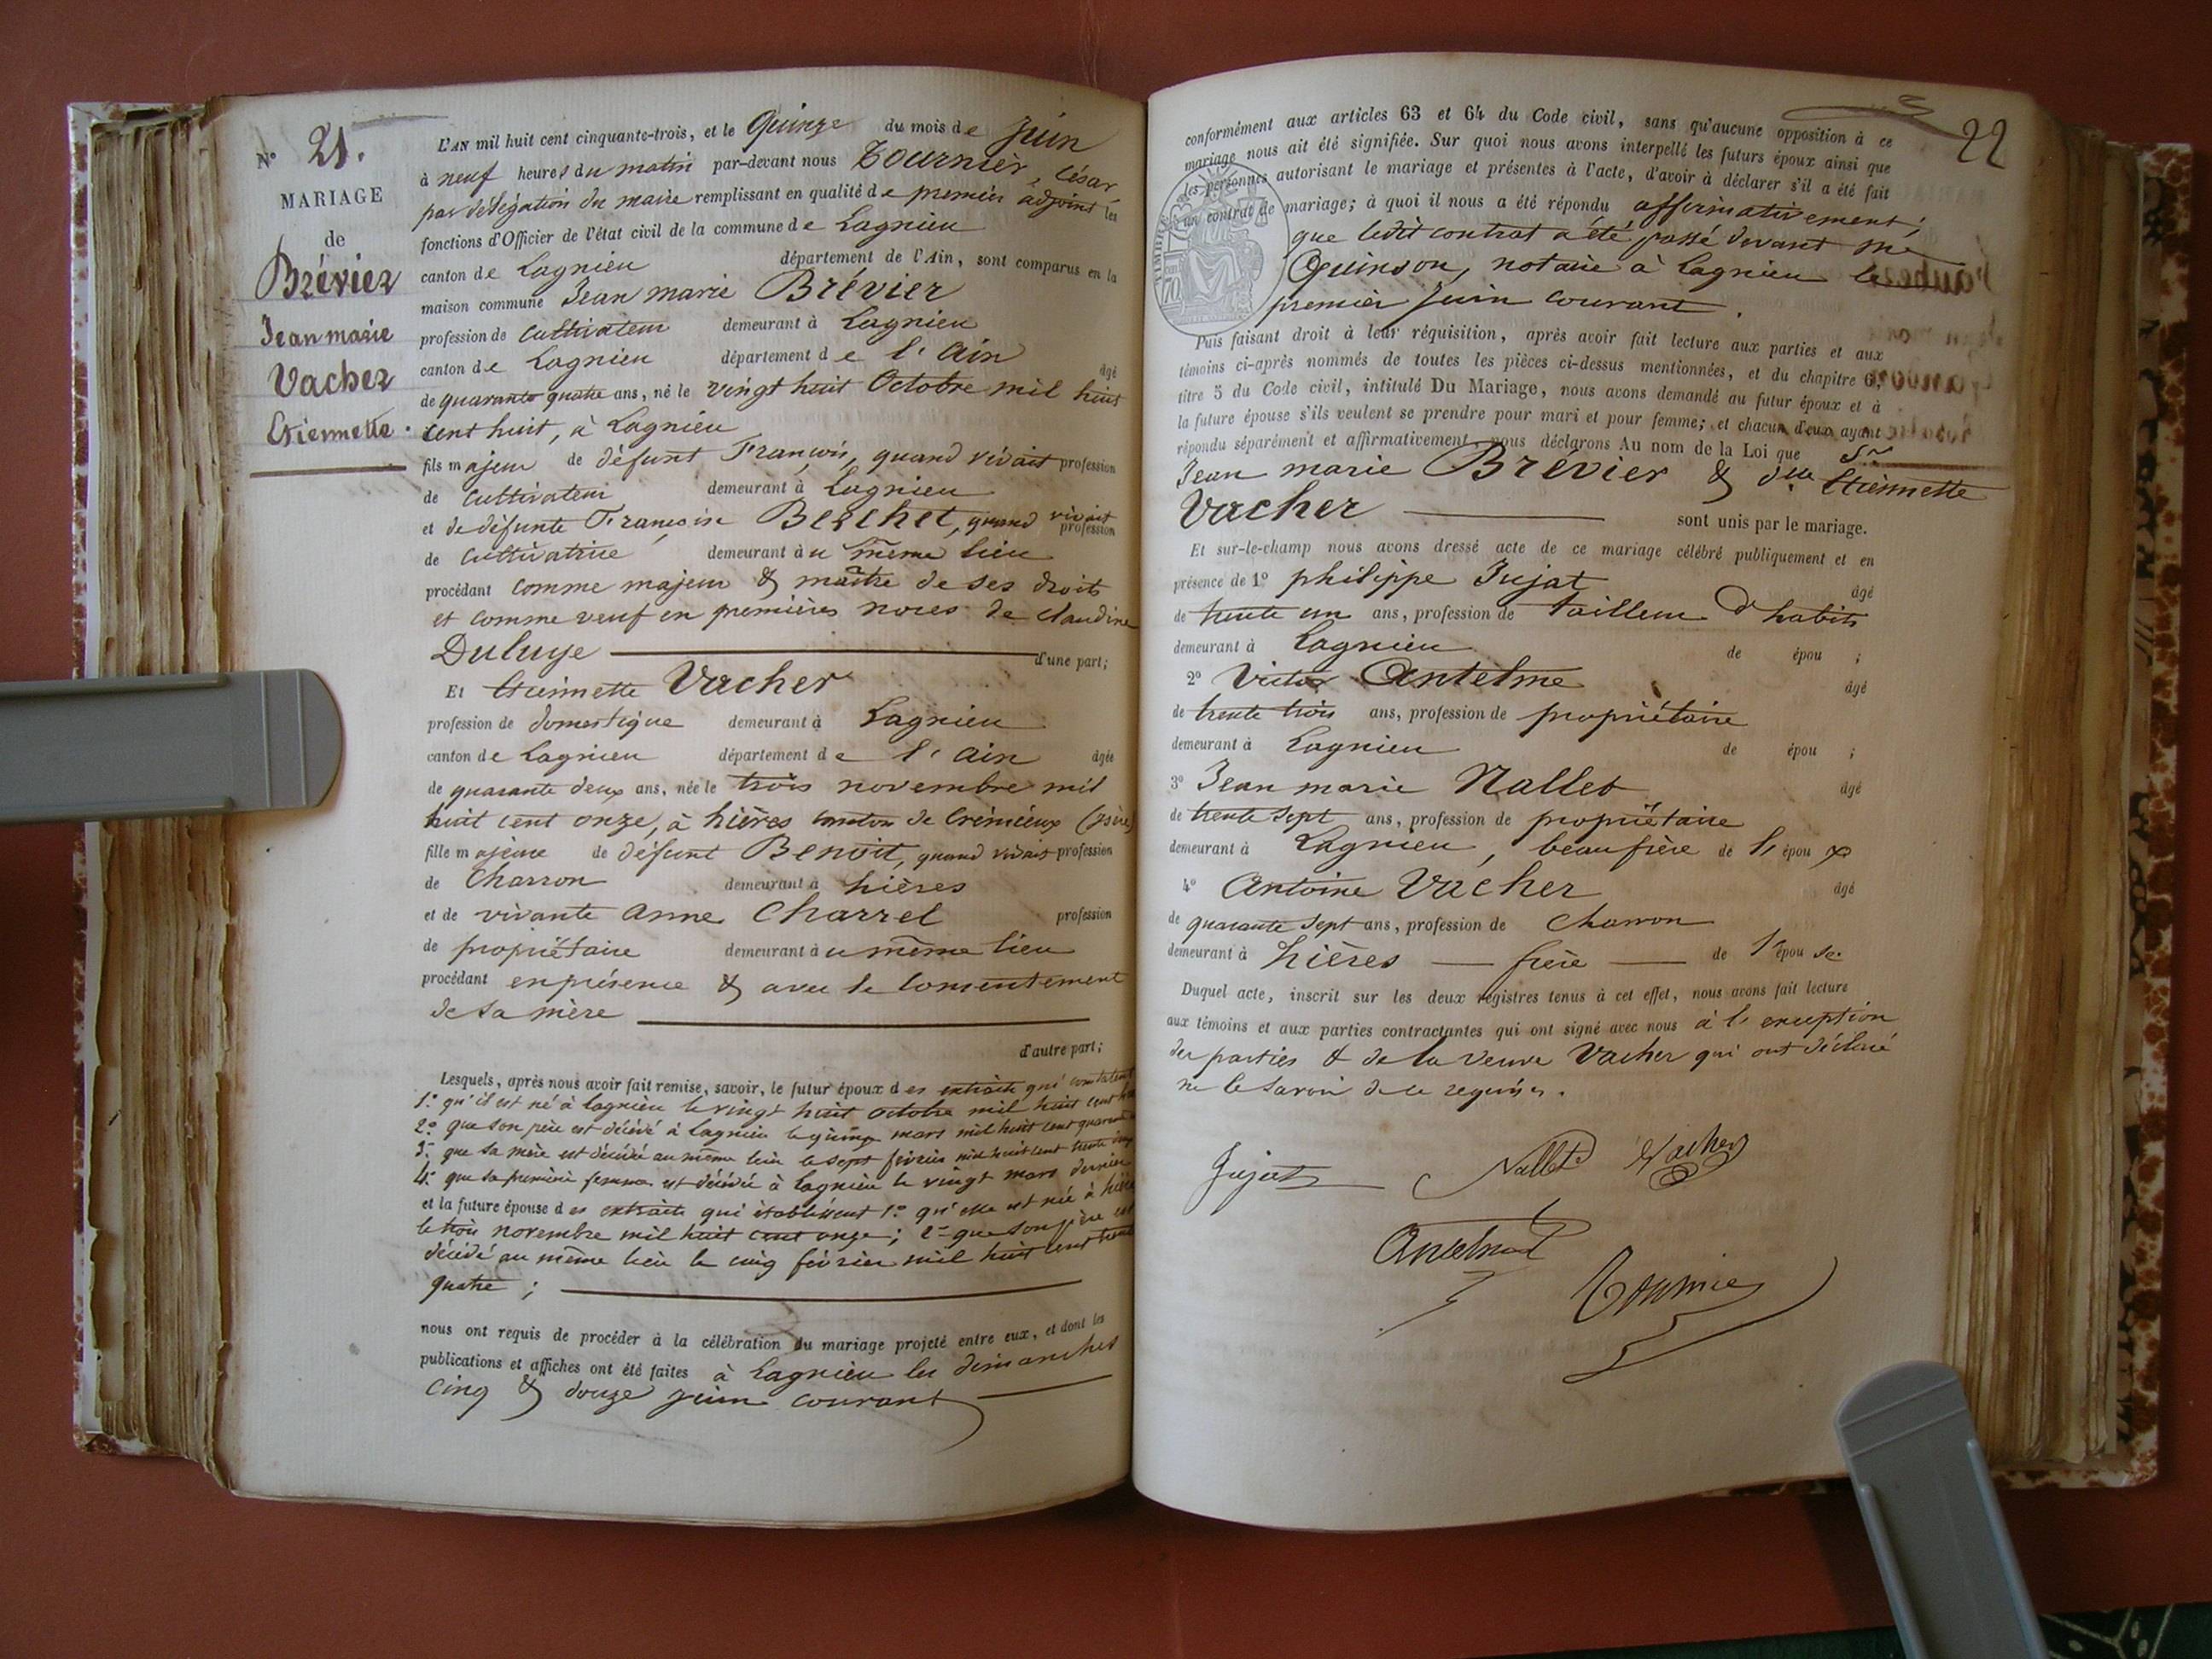 N° 21.
MARIAGE
de
Brévier
Jean marie
Vacher
Etiennette.
L'AN mil huit cent cinquante-trois, et le Quinze du mois de Juin
à neuf heures du matin par-devant nous Tournier, César
par délégation du maire remplissant en qualité de premier adjoint les
fonctions d'Officier de l'état civil de la commune de Lagnieu
canton de Lagnieu département de l'Ain, sont comparus en la
maison commune Jean marie Brévier
profession de cultivateur demeurant à Lagnieu
canton de Lagnieu département de l'Ain âgé
de quarante quatre ans, né le vingt huit Octobre mil huit
cent huit, à Lagnieu
fils majeur de défunt François, quand vivait profession
de cultivateur demeurant à Lagnieu
et de défunte Françoise Berchet, quand vivait profession
de cultivatrice demeurant au même lieu
procédant comme majeur & maître de ses droits
et comme veuf en premières noces de claudine
Duluye d'une part;
Et Etiennette Vacher
profession de domestique demeurant à Lagnieu
canton de Lagnieu département de l'Ain âgée
de quarante deux ans, née le trois novembre mil
huit cent onze, à hières canton de Crémieux (isère)
fille majeure de défunt Benoit, quand vivait profession
de Charron demeurant à hières
et de vivante Anne Charrel profession
de propriétaire demeurant au même lieu
procédant en présence & avec le consentement
de sa mère
d'autre part;
Lesquels, après nous avoir fait remise, savoir, le futur époux des extraits qui constatent
1.° qu'il est né à Lagnieu le vingt huit octobre mil huit cent huit
2.° que son père est décédé à Lagnieu le quinze mars mil huit cent quarante
3.° que sa mère est décédée au même lieu le sept février mil huit cent trente deux
4.° que sa première femme est décédée à Lagnieu le vingt mars dernier
et la future épouse des extraits qui établissent 1.° qu'elle est née à hières
le trois novembre mil huit cent onze; 2.° que son père est
décédé au même lieu le cinq février mil huit cent trente
quatre;
nous ont requis de procéder à la célébration du mariage projeté entre eux, et dont les
publications et affiches ont été faites à Lagnieu les dimanches
cinq & douze juin courant
22
conformément aux articles 63 et 64 du Code civil, sans qu'aucune opposition à ce
mariage nous ait été signifiée. Sur quoi nous avons interpellé les futurs époux ainsi que
les personnes autorisant le mariage et présentes à l'acte, d'avoir à déclarer s'il a été fait
un contrat de mariage; à quoi il nous a été répondu affirmativement,
que ledit contrat a été passé devant me
Quinson, notaire à Lagnieu le
premier Juin courant.
Puis faisant droit à leur réquisition, après avoir fait lecture aux parties et aux
témoins ci-après nommés de toutes les pièces ci-dessus mentionnées, et du chapitre 6,
titre 5 du Code civil, intitulé Du Mariage, nous avons demandé au futur époux et à
la future épouse s'ils veulent se prendre pour mari et pour femme; et chacun d'eux ayant
répondu séparément et affirmativement, nous déclarons Au nom de la Loi que Sr
Jean marie Brévier & dlle Etiennette
Vacher sont unis par le mariage.
Et sur-le-champ nous avons dressé acte de ce mariage célébré publiquement et en
présence de 1° philippe Jujat âgé
de trente un ans, profession de tailleur d'habits
demeurant à Lagnieu de épou ;
2° Victor Antelme âgé
de trente trois ans, profession de propriétaire
demeurant à Lagnieu de épou ;
3° Jean marie Nallet âgé
de trente sept ans, profession de propriétaire
demeurant à Lagnieu, beau frère de l'époux
4° Antoine Vacher âgé
de quarante sept ans, profession de charron
demeurant à hières frère de l'épouse.
Duquel acte, inscrit sur les deux registres tenus à cet effet, nous avons fait lecture
aux témoins et aux parties contractantes qui ont signé avec nous à l'exception
des parties & de la veuve Vacher qui ont déclaré
ne le savoir de ce requises.
Jujat Nallet Vacher
Antelme
Tournier